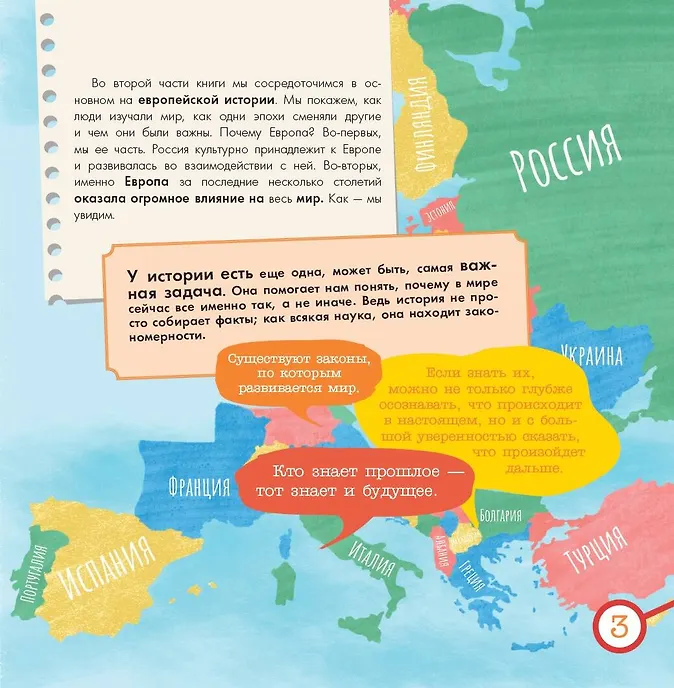 Во второй части книги мы сосредоточимся в ос-
новном на европейской истории. Мы покажем, как
люди изучали мир, как одни эпохи сменяли другие
и чем они были важны. Почему Европа? Во-первых,
мы ее часть. Россия культурно принадлежит к Европе
и развивалась во взаимодействии с ней. Во-вторых,
именно Европа за последние несколько столетий
оказала огромное влияние на весь мир. Как — мы
увидим.
У истории есть еще одна, может быть, самая важ-
ная задача. Она помогает нам понять, почему в мире
сейчас все именно так, а не иначе. Ведь история не про-
сто собирает факты; как всякая наука, она находит зако-
номерности.
Существуют законы,
по которым
развивается мир.
Если знать их,
можно не только глубже
осознавать, что происходит
в настоящем, но и с боль-
шой уверенностью сказать,
что произойдет
дальше.
Кто знает прошлое —
тот знает и будущее.
ФИНЛЯНДИЯ
РОССИЯ
ЭСТОНИЯ
УКРАИНА
ФРАНЦИЯ
БОЛГАРИЯ
ПОРТУГАЛИЯ
ИСПАНИЯ
ИТАЛИЯ
АЛБАНИЯ
ГРЕЦИЯ
ТУРЦИЯ
3